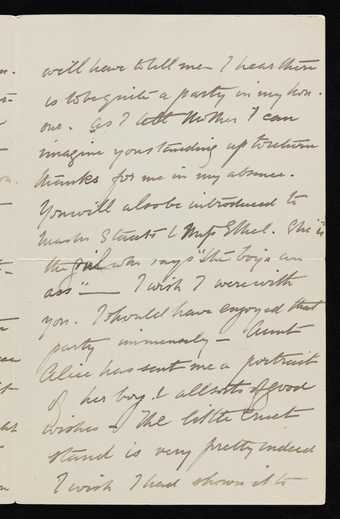 will have to tell me I hear there
is to be quite a party in my hon-
our. As I tell Mother I can
imagine you standing up to return
thanks for me in my absence.
You will also be introduced to
Master Stewart & Miss Ethel. She is
the girl who says "the boy's an
ass" — I wish I were with
you. I should have enjoyed that
party immensely — Aunt
Alice has sent me a portrait
of her boy & all sorts of good
wishes — The little Cruet
stand is very pretty indeed
I wish I had shown it to